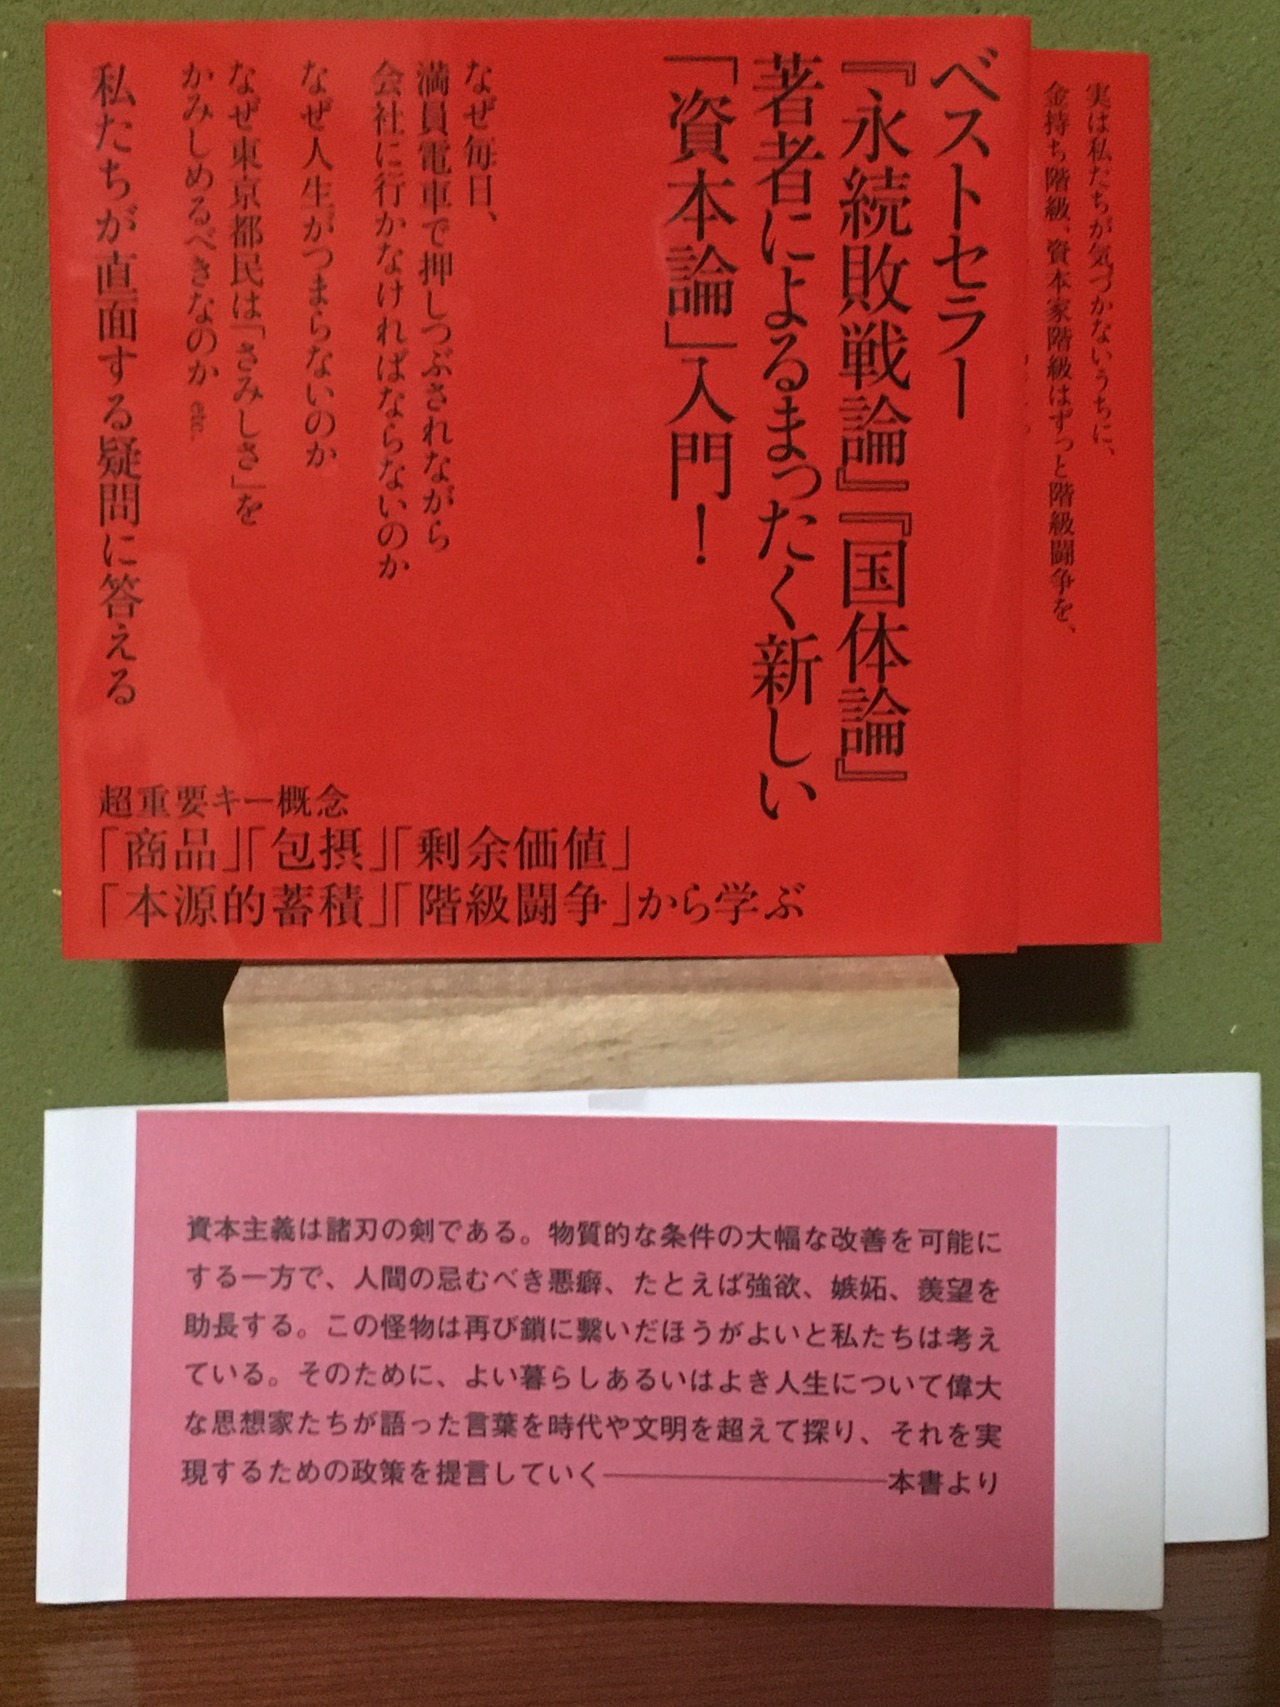 ベストセラー
『永続敗戦論』『国体論』
著者によるまったく新しい
「資本論」入門！
なぜ毎日、
満員電車で押しつぶされながら
会社に行かなければならないのか
なぜ人生がつまらないのか
なぜ東京都民は「さみしさ」を
かみしめるべきなのか etc.
私たちが直面する疑問に答える
超重要キー概念
「商品」「包摂」「剰余価値」
「本源的蓄積」「階級闘争」から学ぶ
実は私たちが気づかないうちに、
金持ち階級、資本家階級はずっと階級闘争を、
資本主義は諸刃の剣である。物質的な条件の大幅な改善を可能に
する一方で、人間の忌むべき悪癖、たとえば強欲、嫉妬、羨望を
助長する。この怪物は再び鎖に繋いだほうがよいと私たちは考え
ている。そのために、よい暮らしあるいはよき人生について偉大
な思想家たちが語った言葉を時代や文明を超えて探り、それを実
現するための政策を提言していく――――――本書より